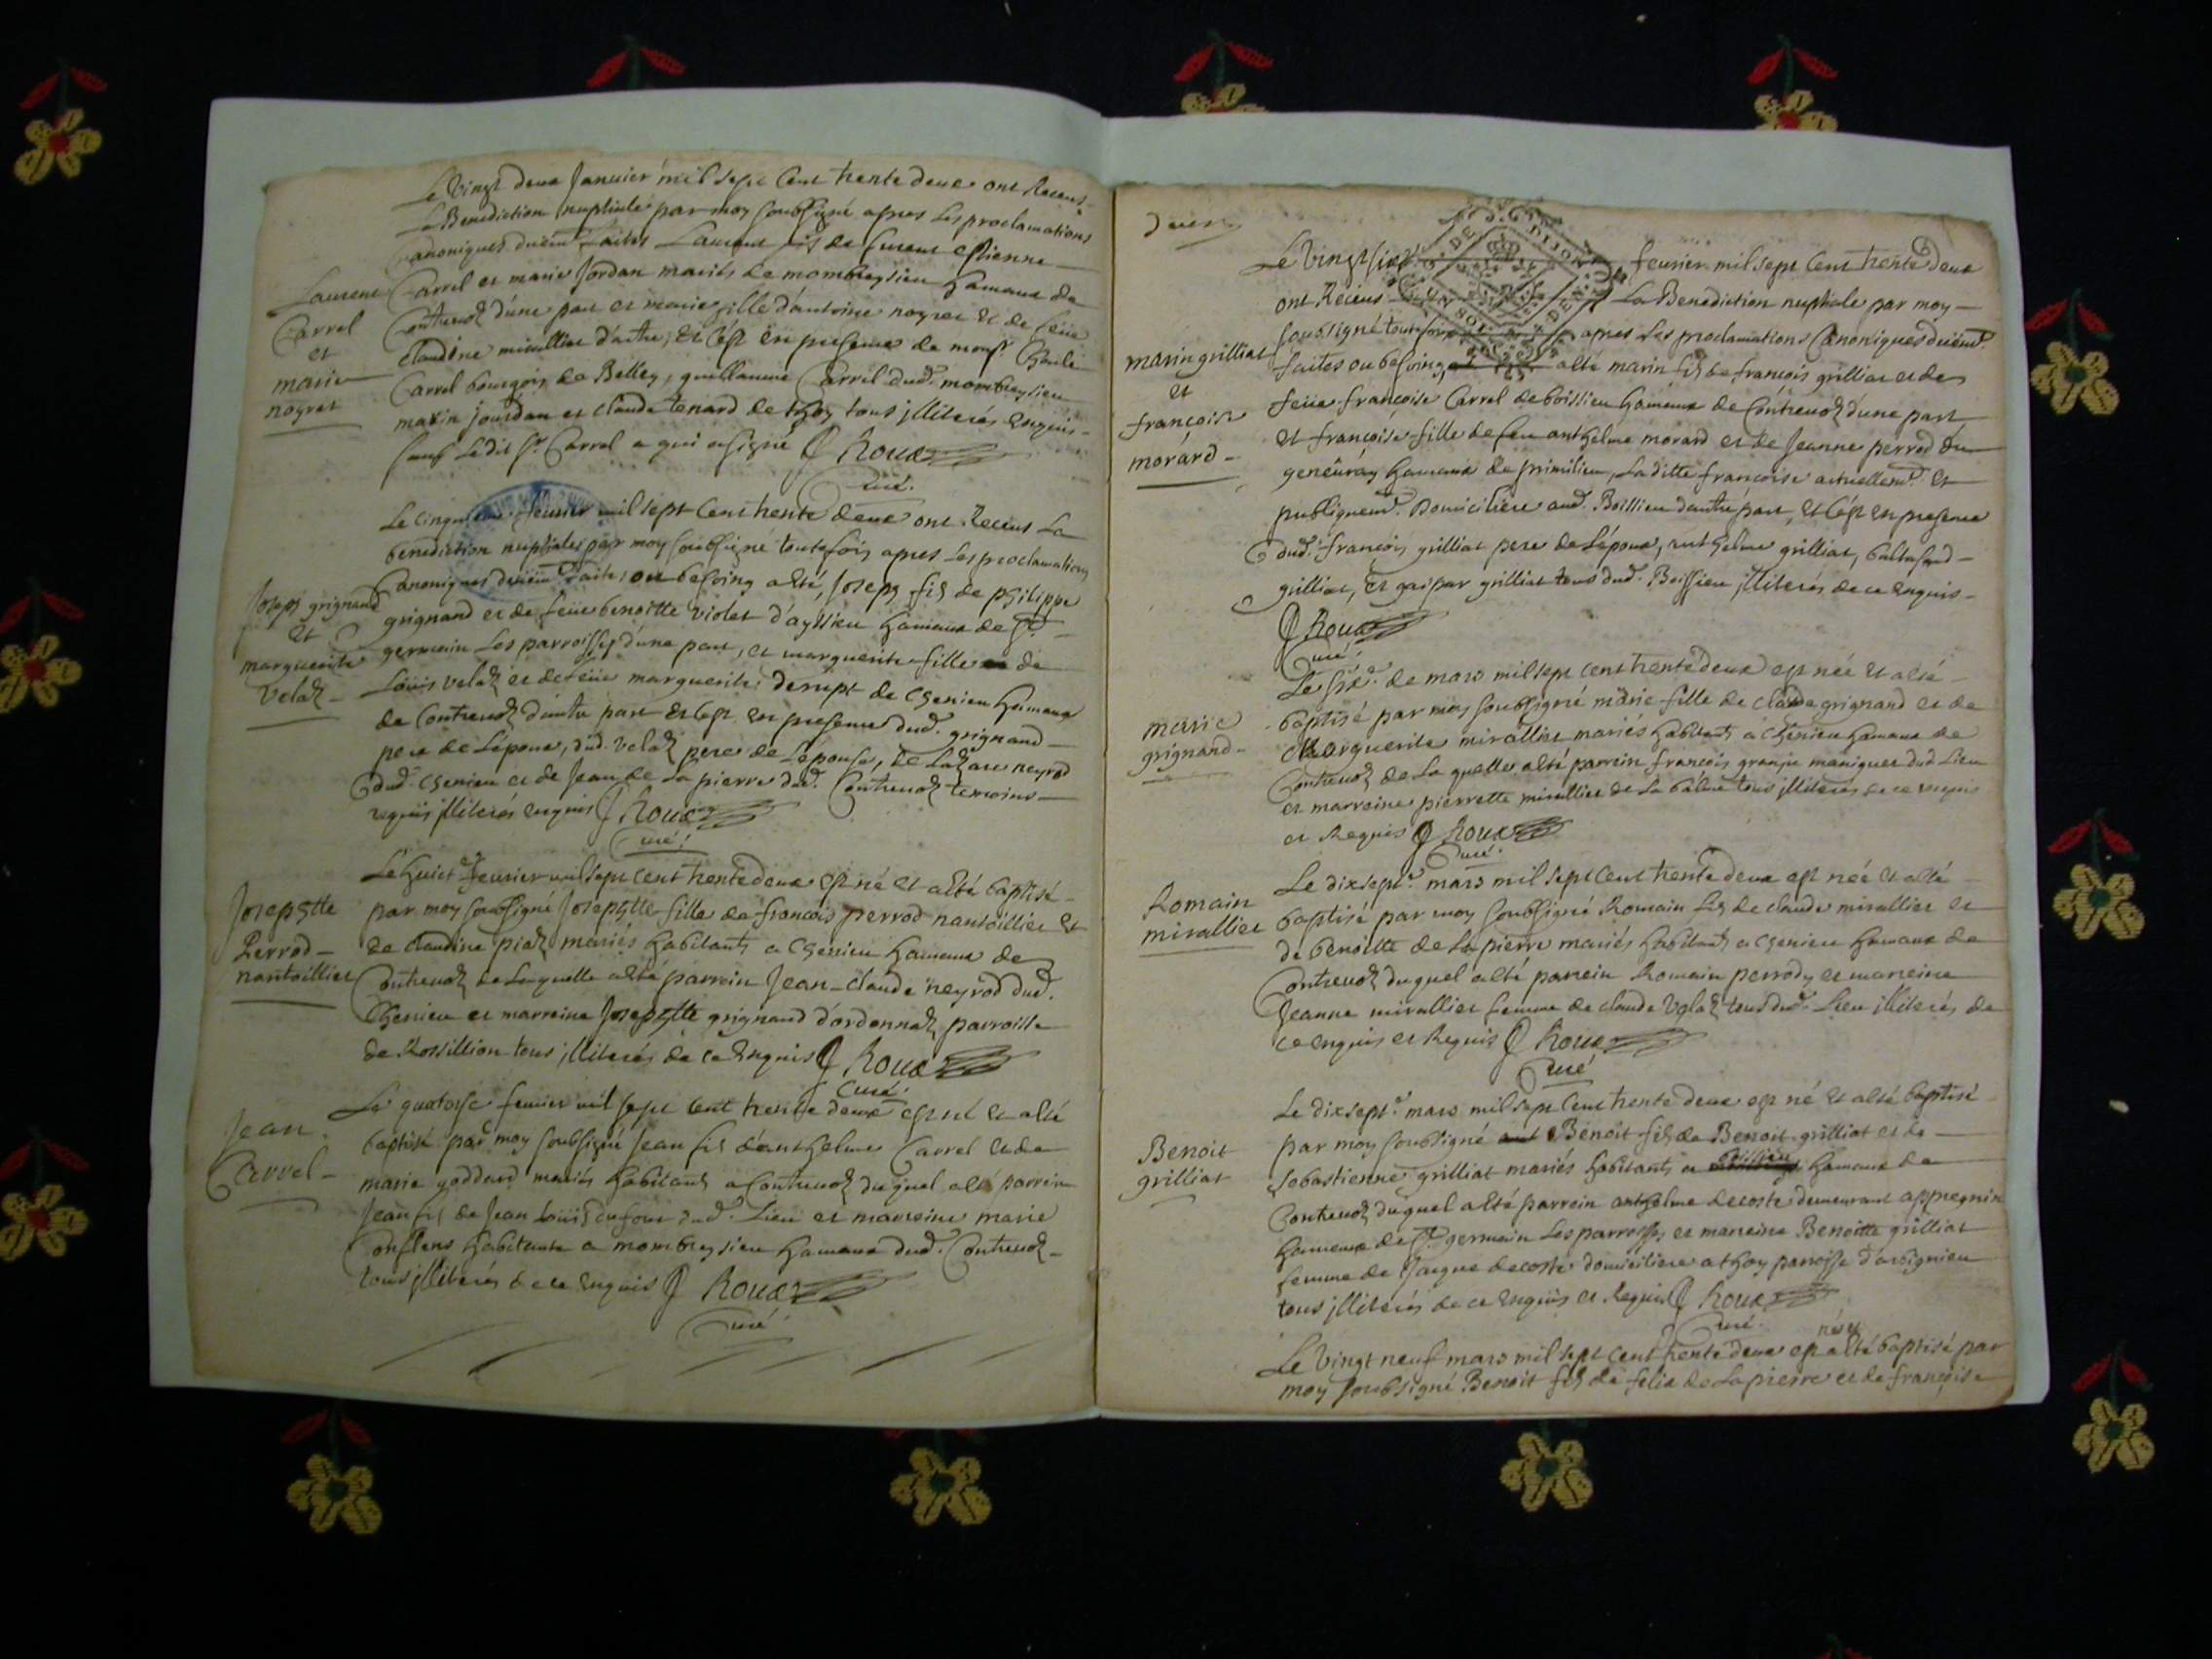 Le vingt deux Janvier mil sept Cent trente deux ont Receus
La Benediction nuptiale par moy soubsigné apres les proclamations
Canoniques duëmt faites Laurent fils de Etienne
Carrel et marie Jordan mariés de mombreysieu hameau de
Contrevoz d'une part et marie fille d'antoine noyret et de feüe
Claudine mirallier d'autre, et c'est en presence de monsr
Carrel bourgois de Belley, guillaume Carrel dud. mombreysieu
marin jourdan et claude tenard de thoy tous jlliterés enquis
sauf Ledit Sr. Carrel a qui a signé J Roux
Curé.
Laurent
Carrel
et
marie
noyret
Le cinquieme fevrier mil sept Cent trente deux ont Receus La
benediction nuptiale par moy soubsigné toutefois apres Les proclamations
Canoniques duëmt faites ou besoing a esté, Joseph fils de philippe
grignand et de feüe benoitte violet d'ayssieu hameau de St.
germain Les parroisses d'une part, et marguerite fille de
Loüis velaz et de feüe marguerite derupt de Chenieu hameau
de Contrevoz d'autre part et c'est en presence dud. grignand
pere de L'epoux, dud. velaz pere de L'epouse, de Lazare neyrod
dud. Chenieu et de Jean de La pierre dud. Contrevoz temoins
requis jlliterés enquis J Roux
Curé.
Joseph grignand
et
marguerite
velaz
Le huict fevrier mil sept cent trente deux est né et a esté baptisé
par moy soubsigné Josephtte fille de francois perrod nantoillier et
de claudine piaz mariés habitants a Chenieu hameau de
Contrevoz de Laquelle a esté parrein Jean-claude neyrod dud.
Chenieu et marreine Josephtte grignand d'ordonnaz parroisse
de Rossillion tous jlliterés de ce Enquis J Roux
Curé.
Josephtte
Perrod
nantoillier
Le quatorse fevrier mil sept cent trente deux est né et a esté
baptisé par moy soubsigné Jean fils d'anthelme Carrel et de
marie goddard mariés habitants a Contrevoz duquel a esté parrein
Jean fils de Jean Loüis dufour dud. Lieu et marreine marie
Conflens habitante a mombreysieu hameau dud. Contrevoz
tous jlliterés de ce Enquis J Roux
Curé.
Jean
Carrel
Le Vingt six fevrier mil sept Cent trente deux
ont Receus La Benediction nuptiale par moy
soubsigné toutefois apres Les proclamations Canoniques duëmt
faites ou besoing a esté marin fils de francois grilliat et de
feüe francoise Carrel de boissieu hameau de Contrevoz d'une part
et francoise fille de feu anthelme morard et de Jeanne perrod du
geneuray hameau de primilieu, Laditte francoise actuellemt et
publiquemt Domiciliere aud. Boissieu d'autre part, et c'est en presence
dud. francois grilliat pere de L'époux, anthelme grilliat, baltasard
grilliat, et gaspar grilliat tous dud. Boissieu jlliterés de ce enquis
J Roux
Curé.
marin grilliat
et
francoise
morard
Le six.e de mars mil sept cent trente deux est née et a esté
baptisé par moy soubsigné marie fille de claude grignand et de
Marguerite mirallier mariés habitants a Chenieu hameau de
Contrevoz de La quelle a esté parrein francois maniguer dud Lieu
et marreine pierrette mirallier de La balme tous jlliterés de ce enquis
et Requis J Roux
Curé.
marie
grignand
Le dixsept.e mars mil sept Cent trente deux est née et a esté
baptisé par moy soubsigné Romain fils de claude mirallier et
de benoitte de La pierre mariés habitants a Chenieu hameau de
Contrevoz duquel a esté parrein Romain perrody et marreine
Jeanne mirallier femme de claude Velaz tous dud. Lieu jlliterés de
ce enquis et Requis J Roux
Curé
Romain
mirallier
Le dixsept.e mars mil sept Cent trente deux est né et a esté baptisé
par moy soubsigné Benoit fils de Benoit grilliat et de
Sebastienne grilliat mariés habitants a boissieu hameau de
Contrevoz duquel a esté parrein anthelme decoste demeurant a ppregnin
hameau de St. germain Les parroisses et marreine Benoitte grilliat
femme de Jacque decoste domiciliere a thoy parroisse d'arbignieu
tous jlliterés de ce enquis et Requis J Roux
Curé.
Benoit
grilliat
Le Vingt neuf mars mil sept cent trente deux est né et a esté baptisé par
moy soubsigné Benoit fils de felix de Lapierre et de francoise